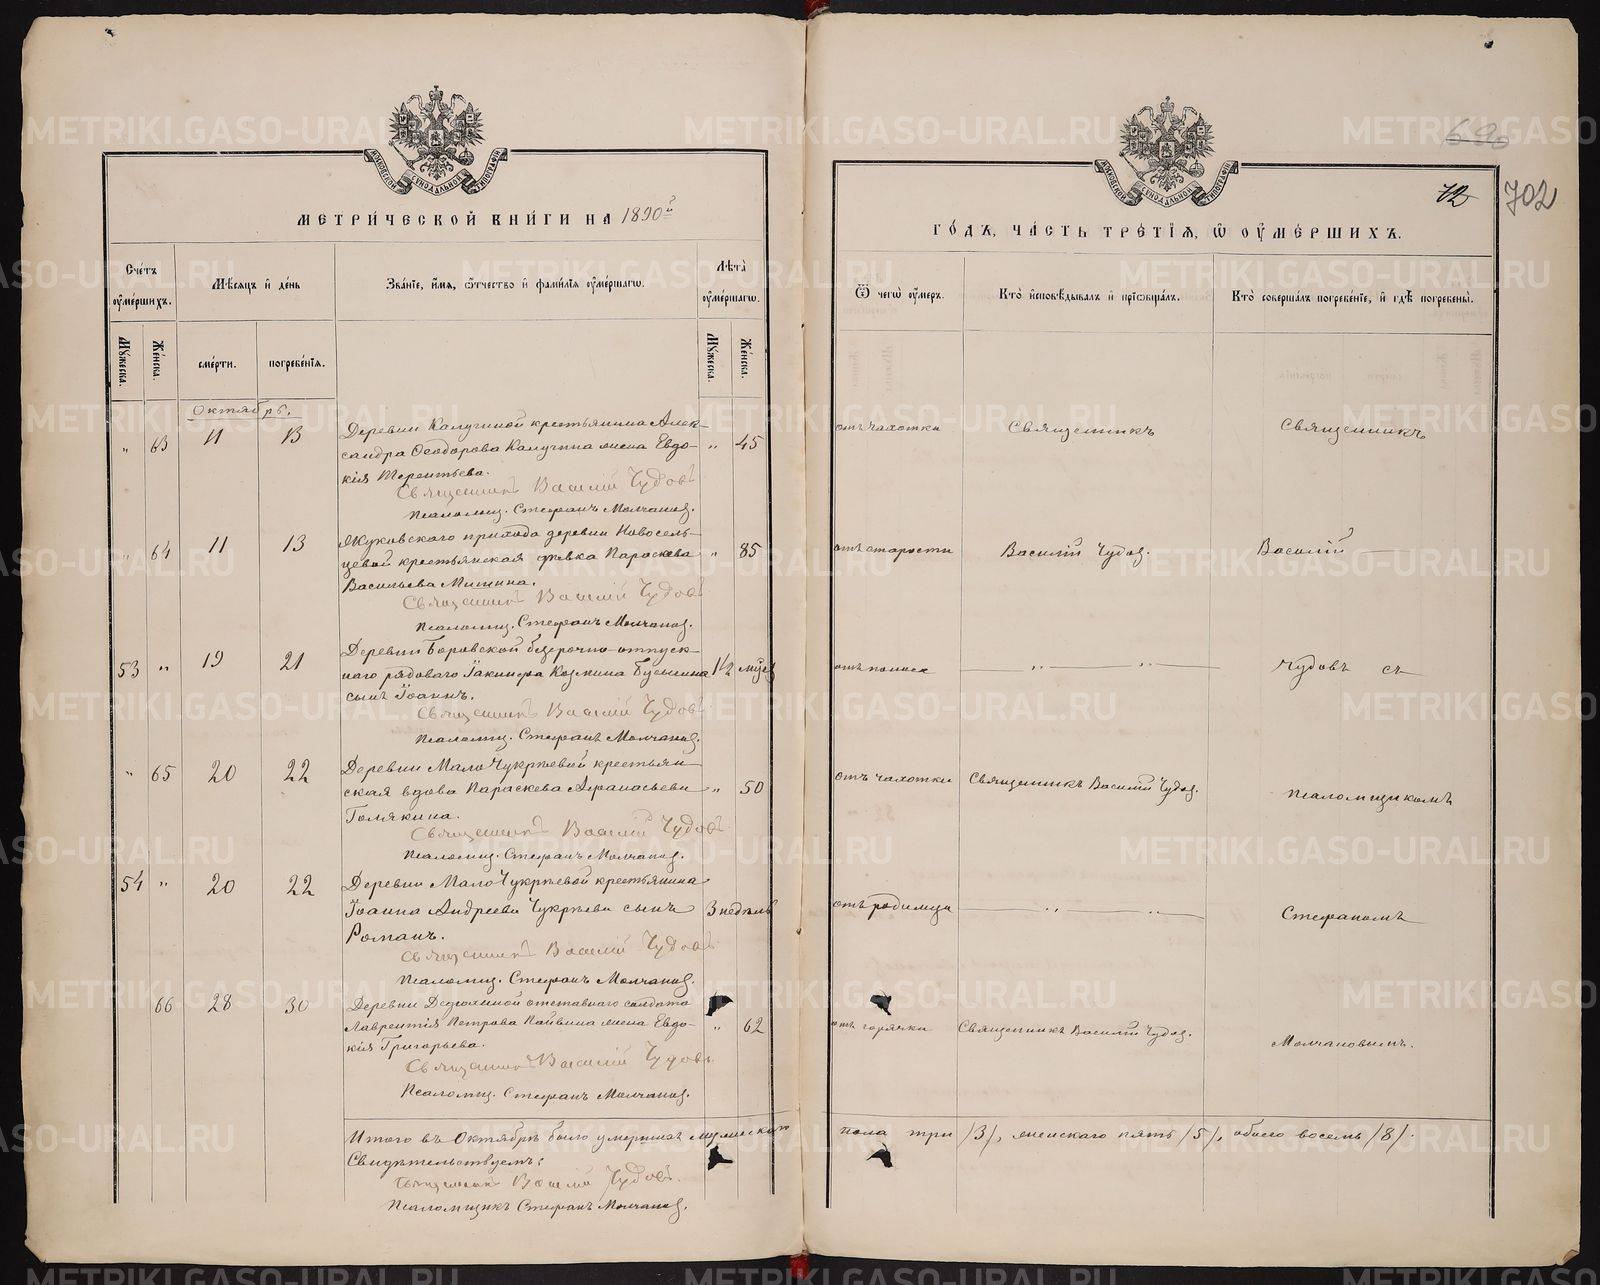 МОСКОВСКОЙ СѴНОДАЛЬНОЙ ТИПОГРАФІИ
МЕТРИ́ЧЕСКОЙ КНИ́ГИ НА 1890 й
Сче́тъ ᲂу҆ме́ршихъ.
Мѣ́сѧцъ и҆ де́нь
Зва́нїе, и҆́мѧ, ѻ҆́тчество и҆ фами́лїѧ ᲂу҆ме́ршагѡ.
Лѣ́та ᲂу҆ме́ршагѡ.
Мꙋ́жеска.
Же́нска.
сме́рти.
погребе́нїѧ.
Мꙋ́жеска.
Же́нска.
Октябрь.
" 63 11 13 Деревни Калугиной крестьянина Алек-
сандра Ѳеодорова Калугина жена Евдо- " 45
кія Терентьева.
Священникъ Василій Чудовъ
Псаломщ. Стефанъ Молчановъ.
" 64 11 13 Жуковскаго прихода деревни Новосель-
цевой крестьянская дѣвка Параскева " 85
Васильева Мишина.
Священникъ Василій Чудовъ
Псаломщ. Стефанъ Молчановъ.
53 " 19 21 Деревни Боровской безсрочно-отпуск-
наго рядоваго Іакинѳа Козмина Бусыгина 1½ мѣс
сынъ Іоаннъ.
Священникъ Василій Чудовъ
Псаломщ. Стефанъ Молчановъ.
" 65 20 22 Деревни МалоЧукрѣевой крестьян-
ская вдова Параскева Аѳанасьева " 50
Голякина.
Священникъ Василій Чудовъ
Псаломщ. Стефанъ Молчановъ.
54 " 20 22 Деревни МалоЧукрѣевой крестьянина
Іоанна Андреева Чукрѣева сынъ 3 недѣль
Романъ.
Священникъ Василій Чудовъ
Псаломщ. Стефанъ Молчановъ.
66 28 30 Деревни Дедюхиной отставнаго солдата
Лаврентія Петрова Пайвина жена Евдо- " 62
кія Григорьева.
Священникъ Василій Чудовъ
Псаломщ. Стефанъ Молчановъ.
Итого въ Октябрѣ было умершихъ мужескаго
Свидѣтельствуемъ:
Священникъ Василій Чудовъ.
Псаломщикъ Стефанъ Молчановъ.
МОСКОВСКОЙ СѴНОДАЛЬНОЙ ТИПОГРАФІИ
690
72
702
ГО́ДЪ, ЧА́СТЬ ТРЕ́ТЇѦ, Ѽ ОУ҆МЕ́РШИХЪ.
Ѿ чегѡ̀ ᲂу҆́меръ.
Кто̀ и҆сповѣ́дывалъ и҆ прїѡбща́лъ.
Кто̀ соверша́лъ погребе́нїе, и҆ гдѣ̀ погребены̀.
отъ чахотки Священникъ Священникъ
отъ старости Василій Чудов. Василій
отъ поноса " " Чудовъ съ
отъ чахотки Священникъ Василій Чудов. псаломщикомъ
отъ родимца " " Стефаномъ
отъ горячки Священникъ Василій Чудов. Молчановымъ.
пола три /3/, женскаго пять /5/, обоего восемь /8/.
METRIKI.GASO-URAL.RU